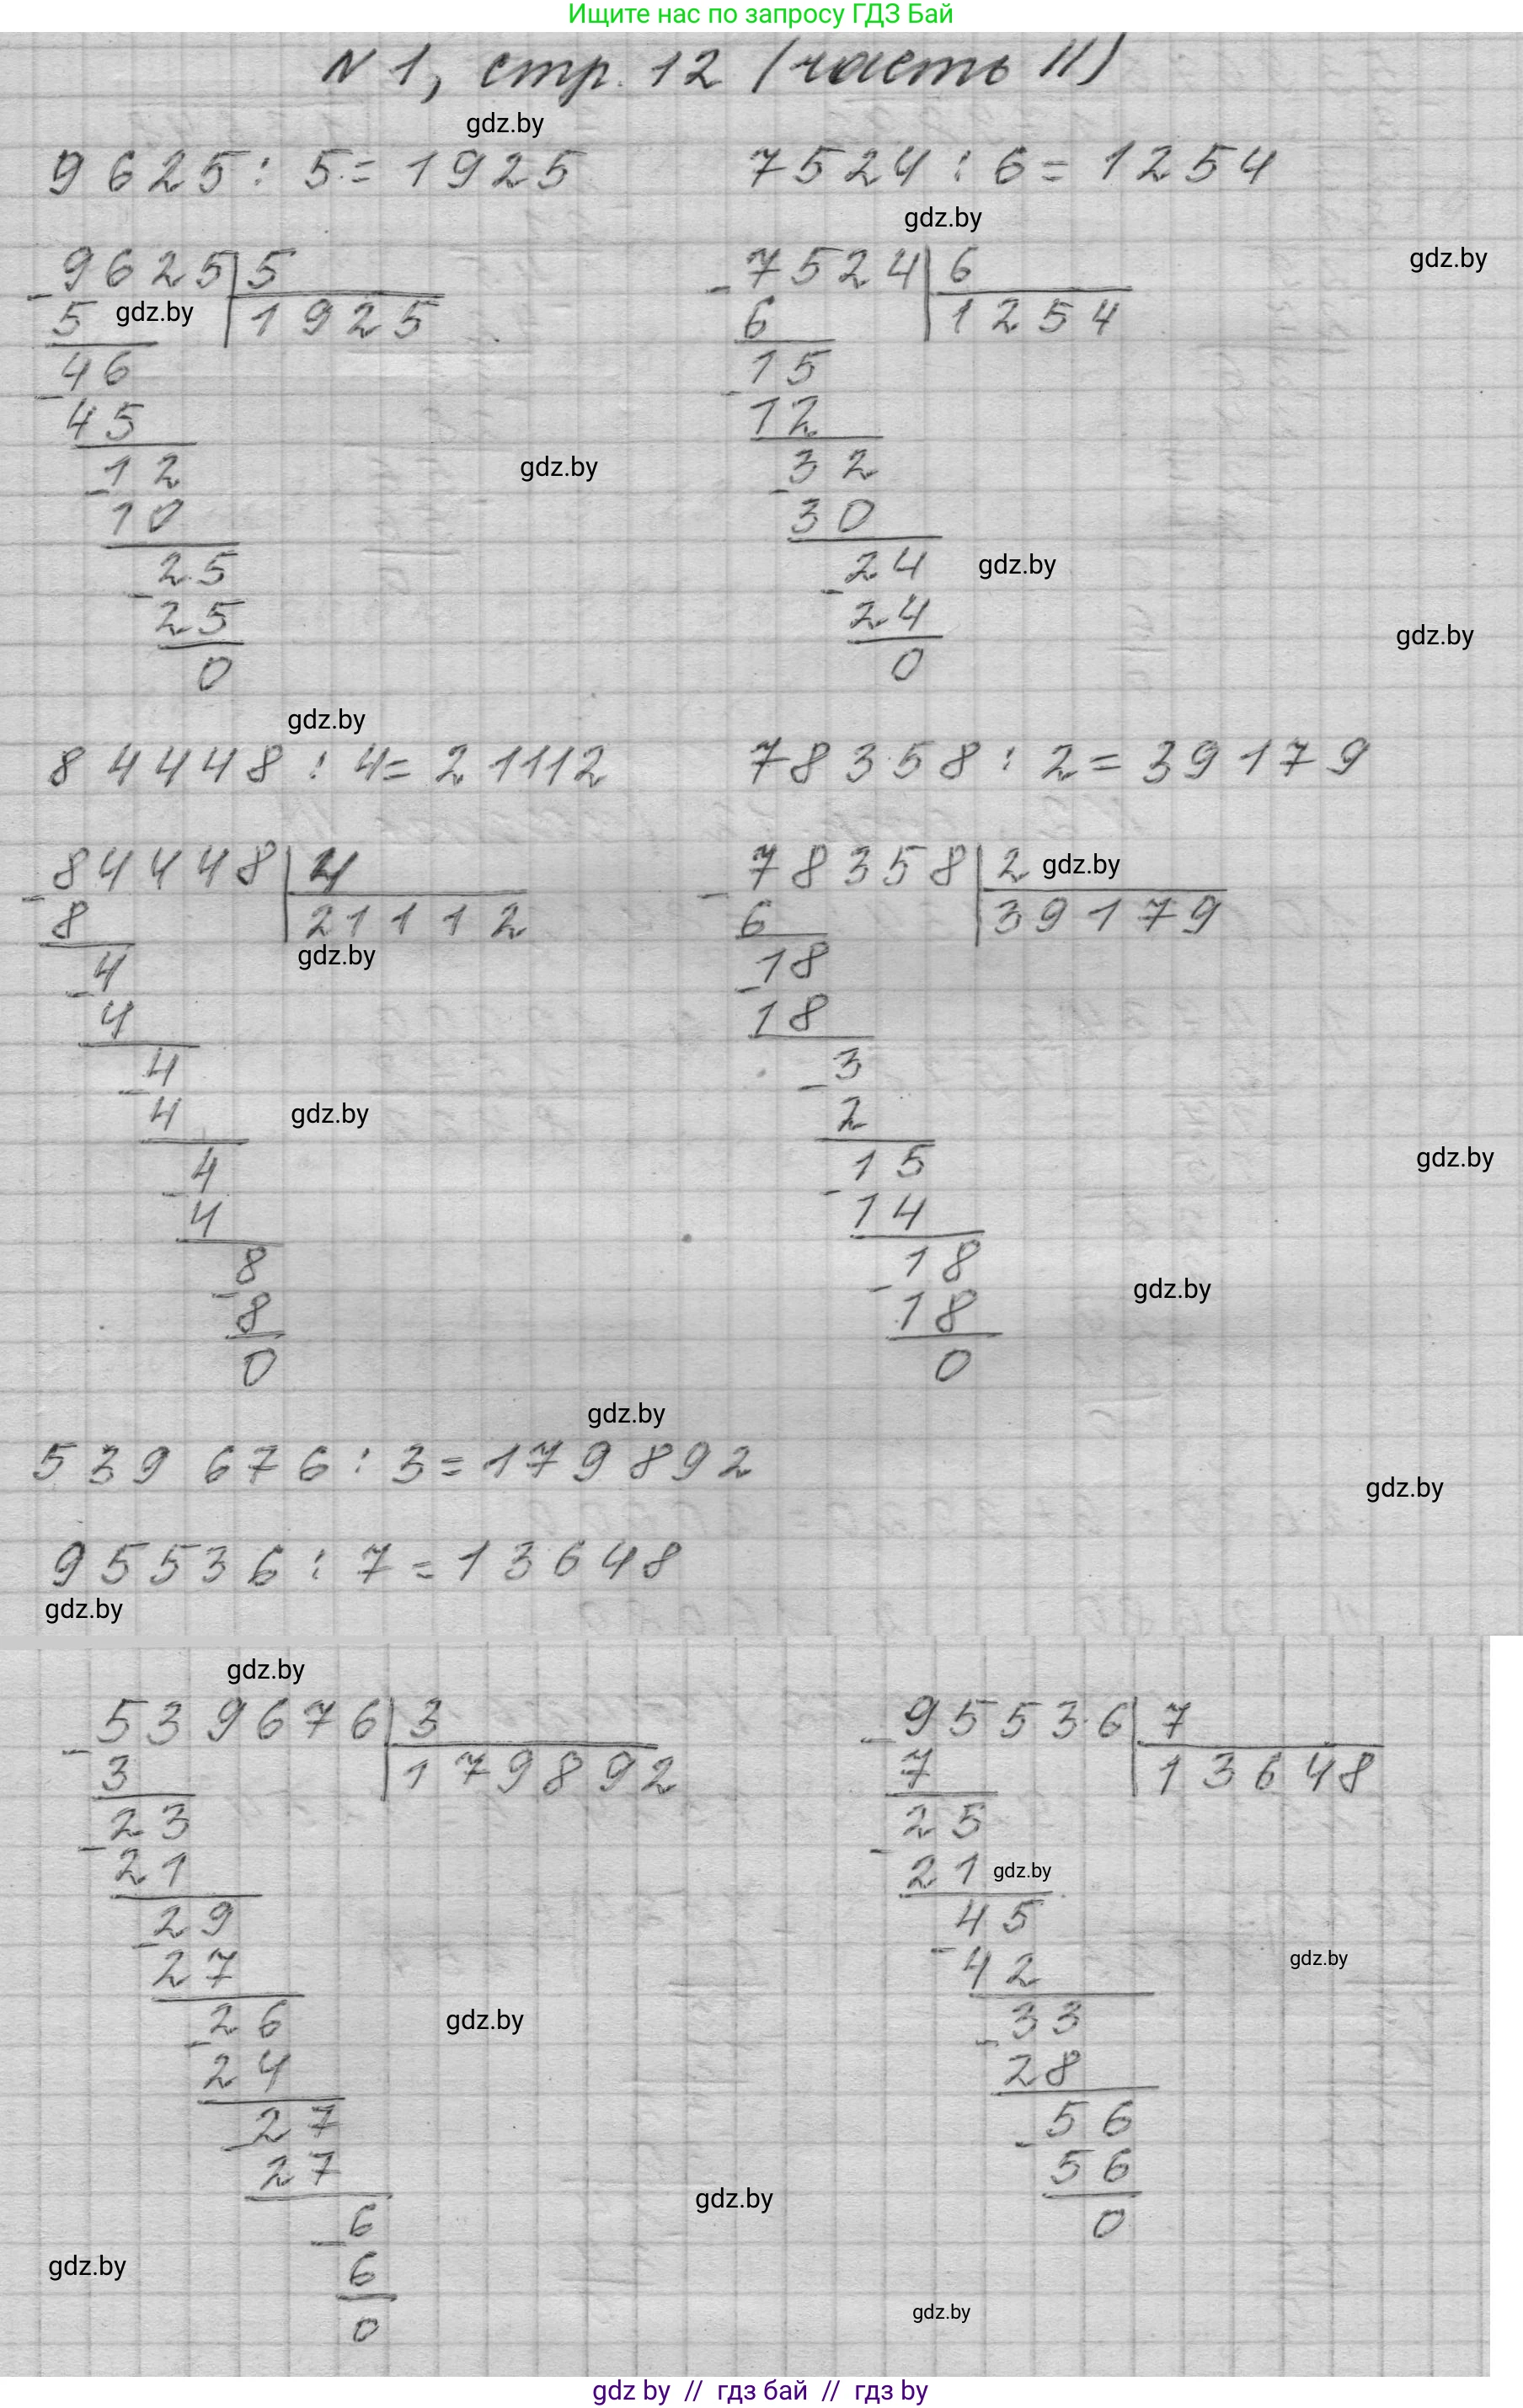 Ищите нас по запросу ГДЗ Бай
N 1, стр. 12 (часть II)
gdz.by
9625 : 5 = 1925
7524 : 6 = 1254
gdz.by
gdz.by
9625 5
- 5 1925
gdz.by
46
- 45
12
- 10
25
- 25
0
7524 6
- 6 1254
15
- 12
32
- 30
24
- 24
0
gdz.by
gdz.by
gdz.by
gdz.by
84448 : 4 = 21112
78358 : 2 = 39179
84448 4
- 8 21112
gdz.by
4
- 4
4
- 4
gdz.by
4
- 4
8
- 8
0
78358 2 gdz.by
- 6 39179
18
- 18
3
- 2
15
- 14
18
- 18
0
gdz.by
gdz.by
gdz.by
539 676 : 3 = 179 892
gdz.by
95536 : 7 = 13648
gdz.by
gdz.by
539676 3
- 3 179892
23
- 21
29
- 27
26
- 24
gdz.by
27
- 27
6
- 6
0
95536 7
- 7 13648
25
- 21 gdz.by
45
- 42
gdz.by
33
- 28
56
- 56
0
gdz.by
gdz.by
gdz.by
gdz by // гдз бай // гдз by